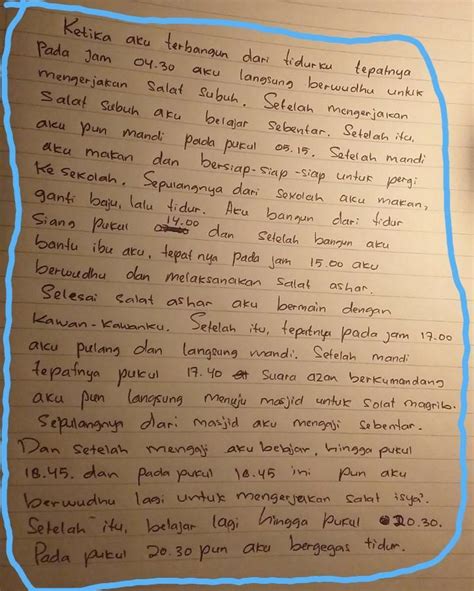 Ketika aku terbangun dari tidurku tepatnya
Pada jam 04.30 aku langsung berwudhu untuk
mengerjakan salat subuh. Setelah mengerjakan
Salat subuh aku belajar sebentar. Setelah itu,
aku pun mandi pada pukul 05.15. Setelah mandi
aku makan dan bersiap-siap-siap untuk pergi
Ke sekolah. Sepulangnya dari sekolah aku makan,
ganti baju, lalu tidur. Aku bangun dari tidur
Siang pukul 14.00 dan setelah bangun aku
bantu ibu aku, tepat nya pada jam 15.00 aku
berwudhu dan melaksanakan salat ashar.
Selesai salat ashar aku bermain dengan
Kawan-Kawanku. Setelah itu, tepatnya pada jam 17.00
aku pulang dan langsung mandi. Setelah mandi
tepatnya pukul 17.40 suara azan berkumandang
aku pun langsung menuju masjid untuk solat magrib.
Sepulangnya dari masjid aku mengaji sebentar.
Dan setelah mengaji aku belajar, hingga pukul
18.45. dan pada pukul 18.45 ini pun aku
berwudhu lagi untuk mengerjakan salat isya'.
Setelah itu, belajar lagi hingga pukul 20.30.
Pada pukul 20.30 pun aku bergegas tidur.